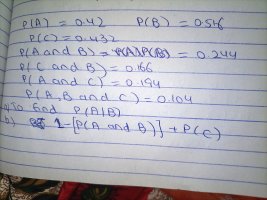 P(A) = 0.42 P(B) = 0.546
P(C) = 0.432
P(A and B) = P(A)P(B) = 0.244
P(C and B) = 0.166
P(A and C) = 0.194
P(A, B and C) = 0.104
a) To find P(A|B)
b.) 1-[P(A and B)] + P(C)